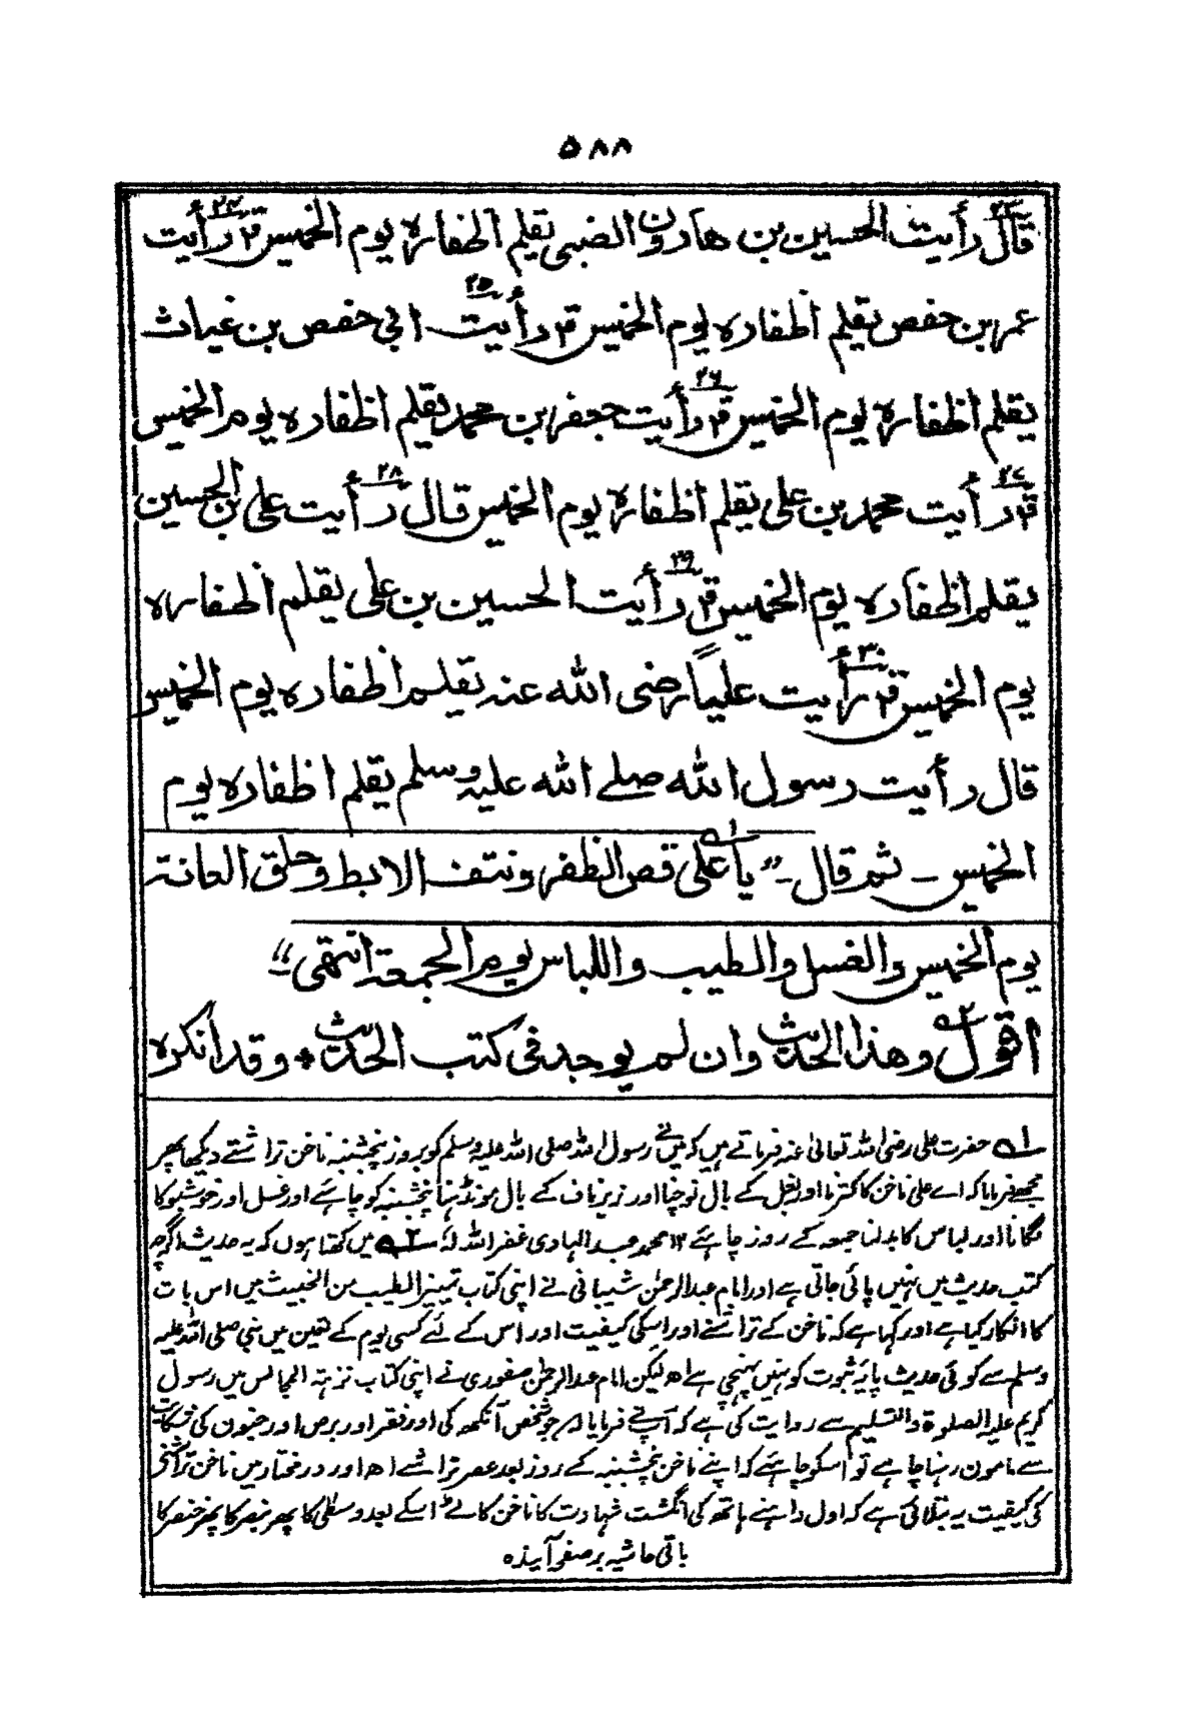 ۵۸۸
قال رأيت الحسين بن هارون الضبى يقلم اظفاره يوم الخميس قال رأيت
عمر بن حفص يقلم اظفاره يوم الخميس قال رأيت ابي حفص بن غياث
يقلم اظفاره يوم الخميس قال رأيت جعفر بن محمد يقلم اظفاره يوم الخميس
قال رأيت محمد بن على يقلم اظفاره يوم الخميس قال رأيت على بن الحسين
يقلم اظفاره يوم الخميس قال رأيت الحسين بن على يقلم اظفاره
يوم الخميس قال رأيت علياً رضى الله عنه يقلم اظفاره يوم الخميس
قال رأيت رسول الله صلے الله عليه وسلم يقلم اظفاره يوم
الخميس ـ ثم قال ـ” يا على قص الظفر ونتف الابط وحلق العانة
يوم الخميس والغسل والطيب واللباس يوم الجمعة انتهى“
اقول وهذا الحديث وان لم يوجد فى كتب الحديث + وقد انكره
۱؎ حضرت علی رضی اللہ تعالیٰ عنہ فرماتے ہیں کہ میں نے رسول اللہ صلی اللہ علیہ وسلم کو بروز پنجشنبہ ناخن تراشتے دیکھا پھر
مجھے فرمایا کہ اے علی ناخن کا کترنا اور بغل کے بال نوچنا اور زیر ناف کے بال مونڈہنا پنجشنبہ کو چاہئے اور غسل اور خوشبو کا
لگانا اور لباس کا بدلنا جمعہ کے روز چاہئے ۱۲ محمد عبد الہادی غفر اللہ لہٗ ۲؎ میں کہتا ہوں کہ یہ حدیث اگرچہ
کتب حدیث میں نہیں پائی جاتی ہے اور امام عبدالرحمٰن شیبانی نے اپنی کتاب تمییز الطیب من الخبیث میں اس بات
کا انکار کیا ہے اور کہا ہے کہ ناخن کے تراشنے اور اسکی کیفیت اور اس کے لئے کسی یوم کے تعین میں نبی صلی اللہ علیہ
وسلم سے کوئی حدیث پایہ ثبوت کو نہیں پہنچی ہے اھ لیکن امام عبدالرحمٰن صفوری نے اپنی کتاب نزہۃ المجالس میں رسول
کریم علیہ الصلوۃ والتسلیم سے روایت کی ہے کہ آپ نے فرمایا ہر جو شخص آنکھ کی اور فقر اور برص اور جنون کی شکایت
سے مامون رہنا چاہے تو اسکو چاہئے کہ اپنے ناخن پنجشنبہ کے روز بعد عصر تراشے اھ اور درمختار میں ناخن تراشنے
کی کیفیت یہ بتلائی ہے کہ اول داہنے ہاتھ کی انگشت شہادت کا ناخن کاٹے اسکے بعد وسطیٰ کا پھر بنصر کا پھر خنصر کا
باقی حاشیہ بر صفحہ آیندہ